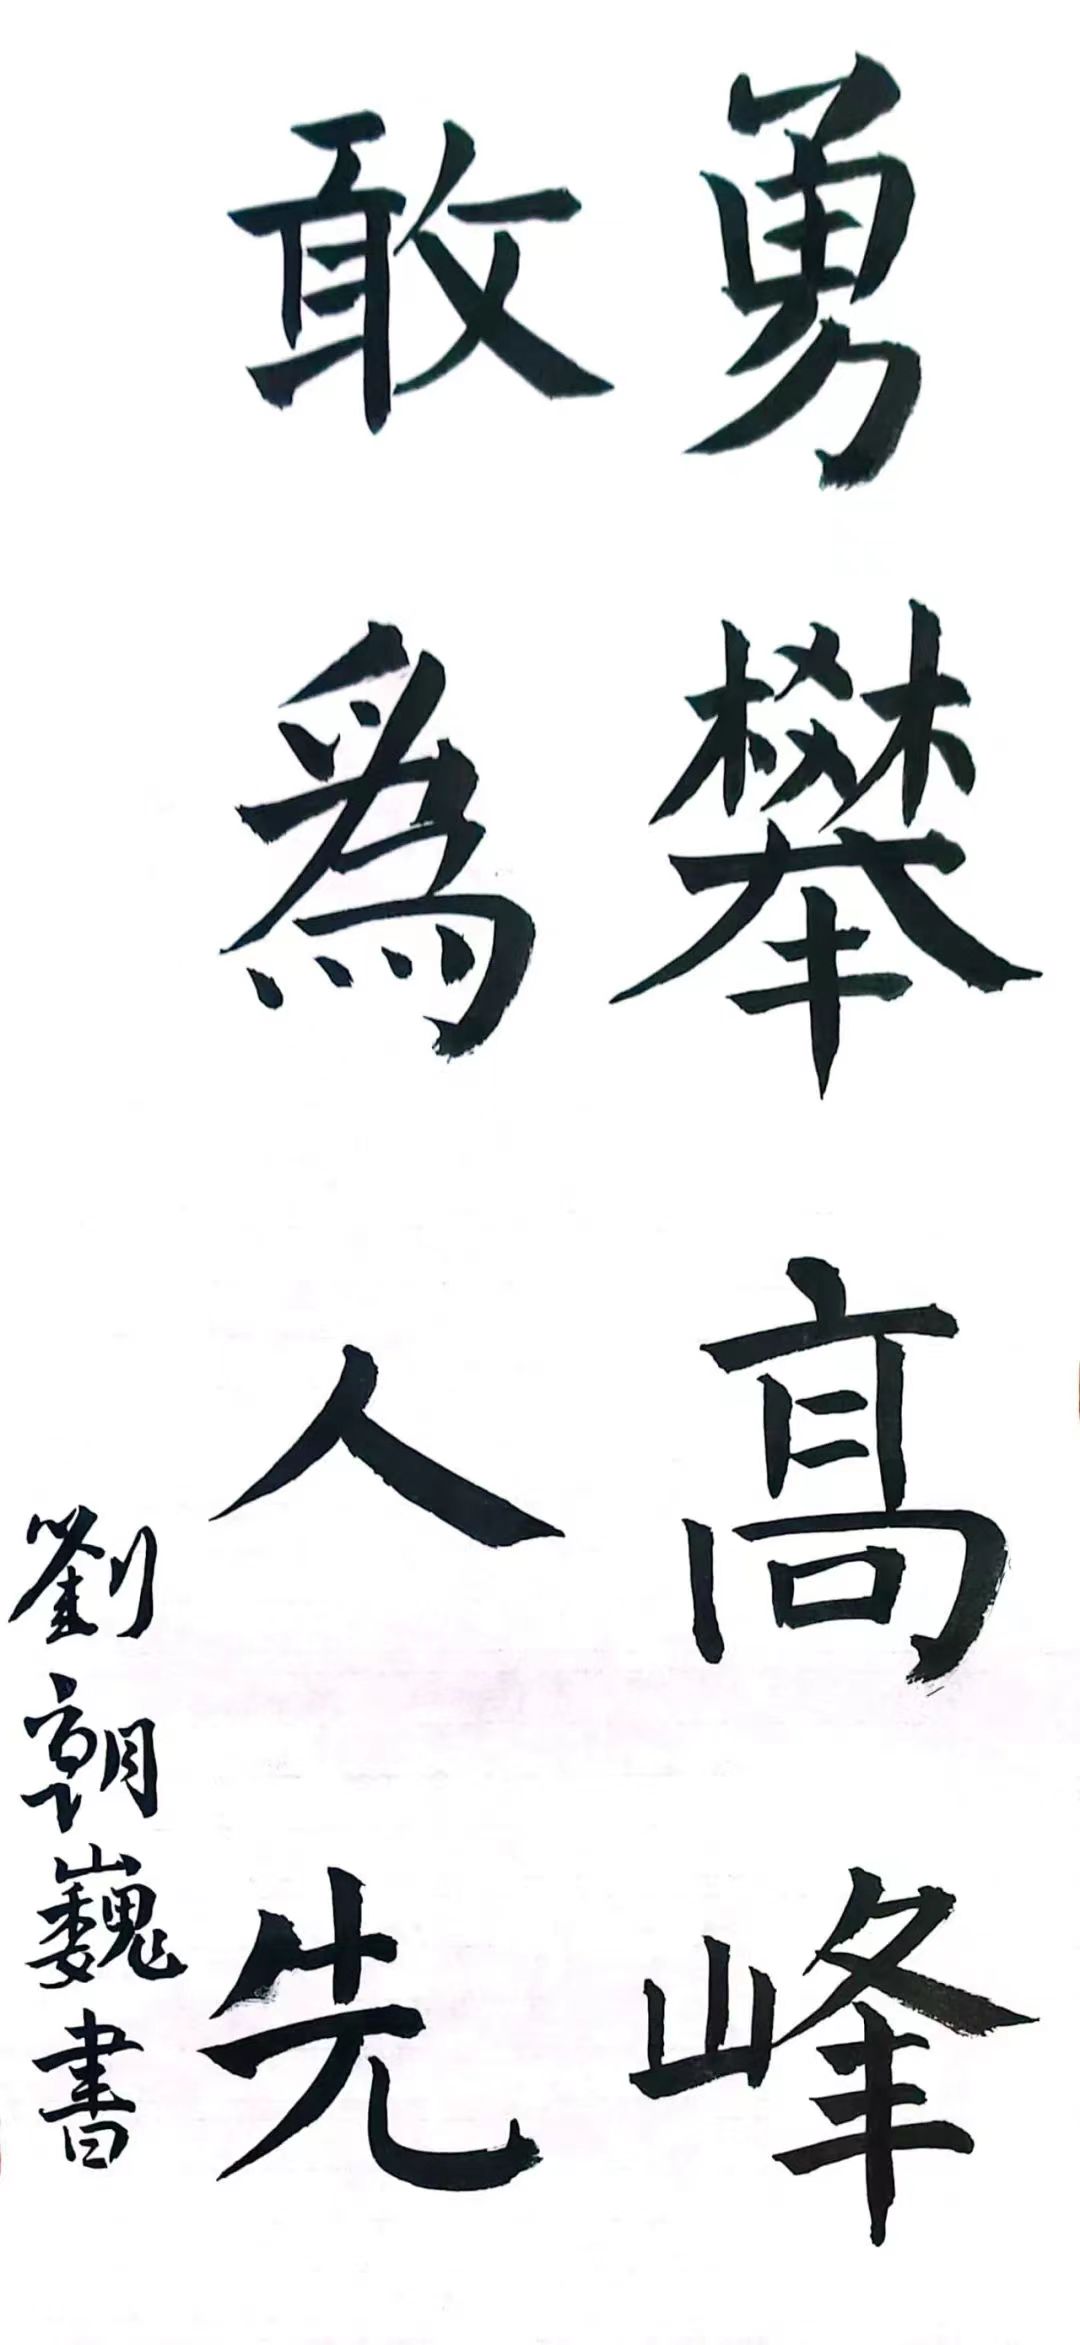 勇攀高峰
敢為人先
劉朝巍書